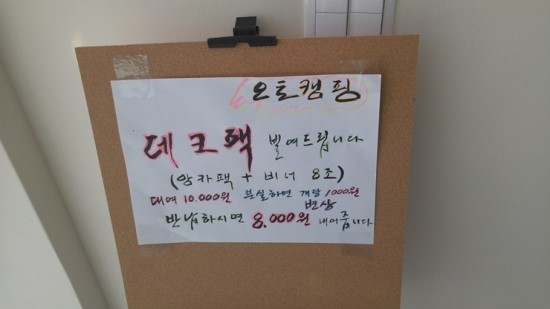 오토캠핑
데크팩 빌여드립니다
(앙카팩 + 비너 8조)
대여 10.000원 분실하면 개당 1000원
변상
반납하시면 8.000원 내어줍니다